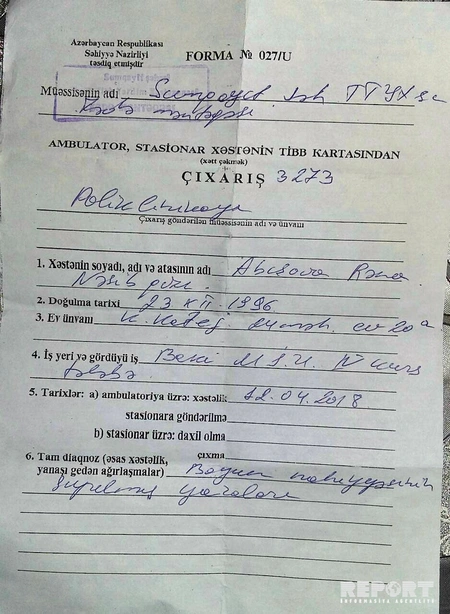 Azərbaycan Respublikası
Səhiyyə Nazirliyi
təsdiq etmişdir
FORMA № 027/U
Müəssisənin adı Sumqayıt şəh TTYX
AMBULATOR, STASIONAR XƏSTƏNİN TİBB KARTASINDAN
(xətt çəkmək)
ÇIXARIŞ 3273
Poliklinikaya
Çıxarış göndərilən müəssisənin adı və ünvanı
1. Xəstənin soyadı, adı və atasının adı Abışova Rəna
Nəsib qızı.
2. Doğulma tarixi 23 XII 1996
3. Ev ünvanı ev 20a
4. İş yeri və gördüyü iş Bakı M.S.U. IV kurs
tələbə
5. Tarixlər: a) ambulatoriya üzrə: xəstəlik 12.04.2018
stasionara göndərilmə
b) stasionar üzrə: daxil olma
çıxma
6. Tam diaqnoz (əsas xəstəlik,
yanaşı gedən ağırlaşmalar) Boyun nahiyyəsinin
yaraları
REPORT
İNFORMASİYA AGENTLİYİ